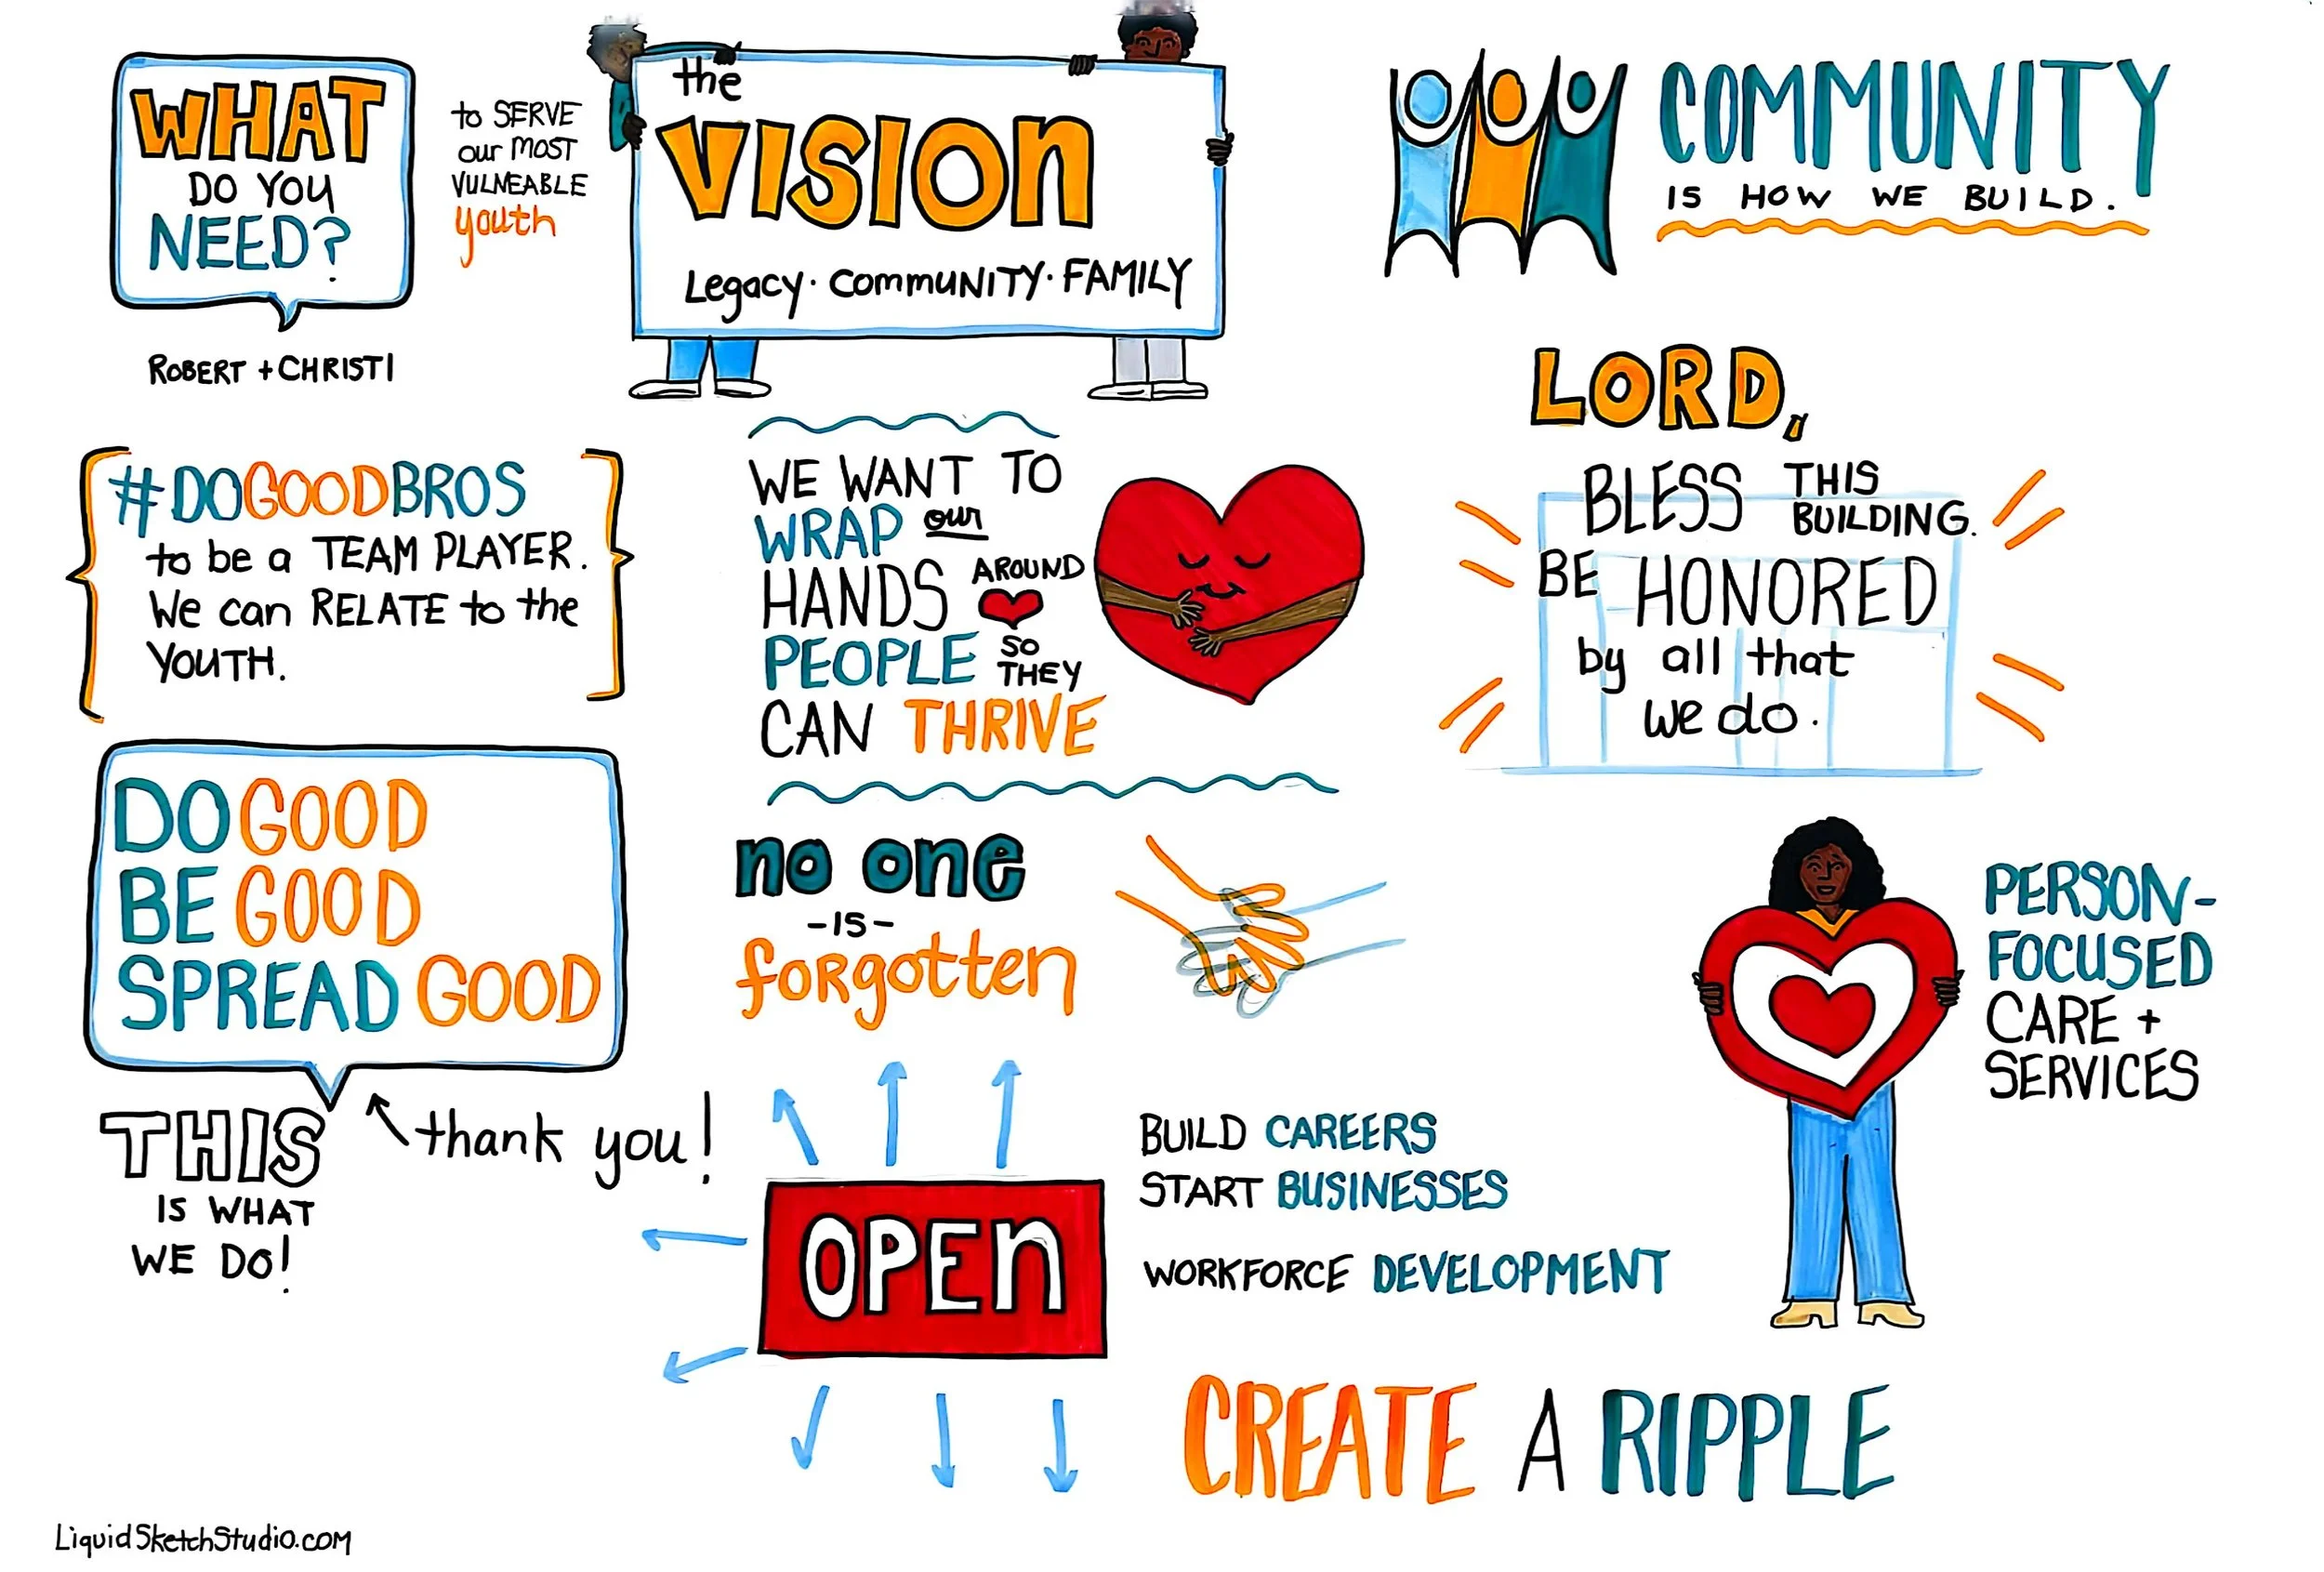 WHAT
DO YOU
NEED?
ROBERT + CHRISTI
to SERVE
our MOST
VULNEABLE
youth
the
VISION
Legacy · COMMUNITY · FAMILY
COMMUNITY
IS HOW WE BUILD.
#DOGOODBROS
to be a TEAM PLAYER.
We can RELATE to the
YOUTH.
WE WANT TO
WRAP our
HANDS AROUND
PEOPLE SO THEY
CAN THRIVE
LORD,
BLESS THIS BUILDING.
BE HONORED
by all that
we do.
DO GOOD
BE GOOD
SPREAD GOOD
THIS
IS WHAT
WE DO!
thank you!
no one
-IS-
forgotten
PERSON-
FOCUSED
CARE +
SERVICES
OPEN
BUILD CAREERS
START BUSINESSES
WORKFORCE DEVELOPMENT
CREATE A RIPPLE
LiquidSketchStudio.com